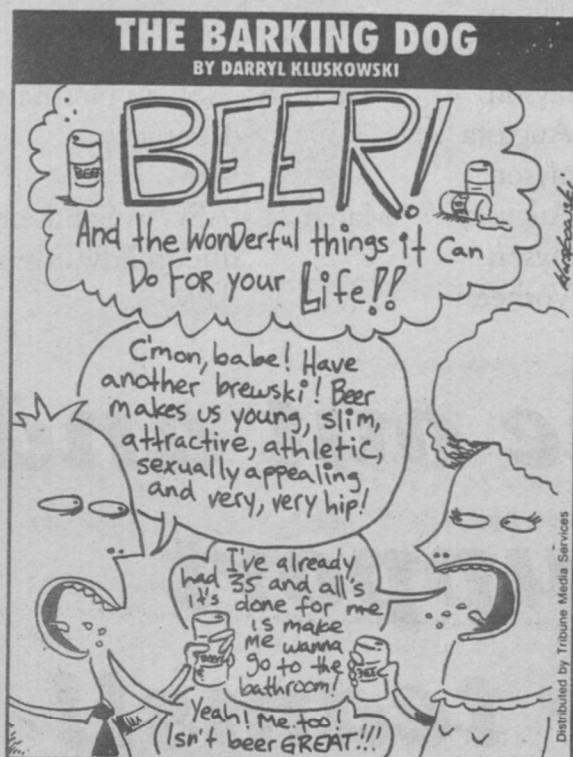 THE BARKING DOG
BY DARRYL KLUSKOWSKI
BEER!
BEER
And the WonDerful things it Can
Do FoR your Life!!
C'mon, babe! Have
another brewski! Beer
makes us young, slim,
attractive, athletic,
sexually appealing
and very, very hip!
I've already
had 35 and all's
it's done for me
is make
me wanna
go to the
bathroom!
BEER
Yeah! Me too!
Isn't beer GREAT!!!
Distributed by Tribune Media Services